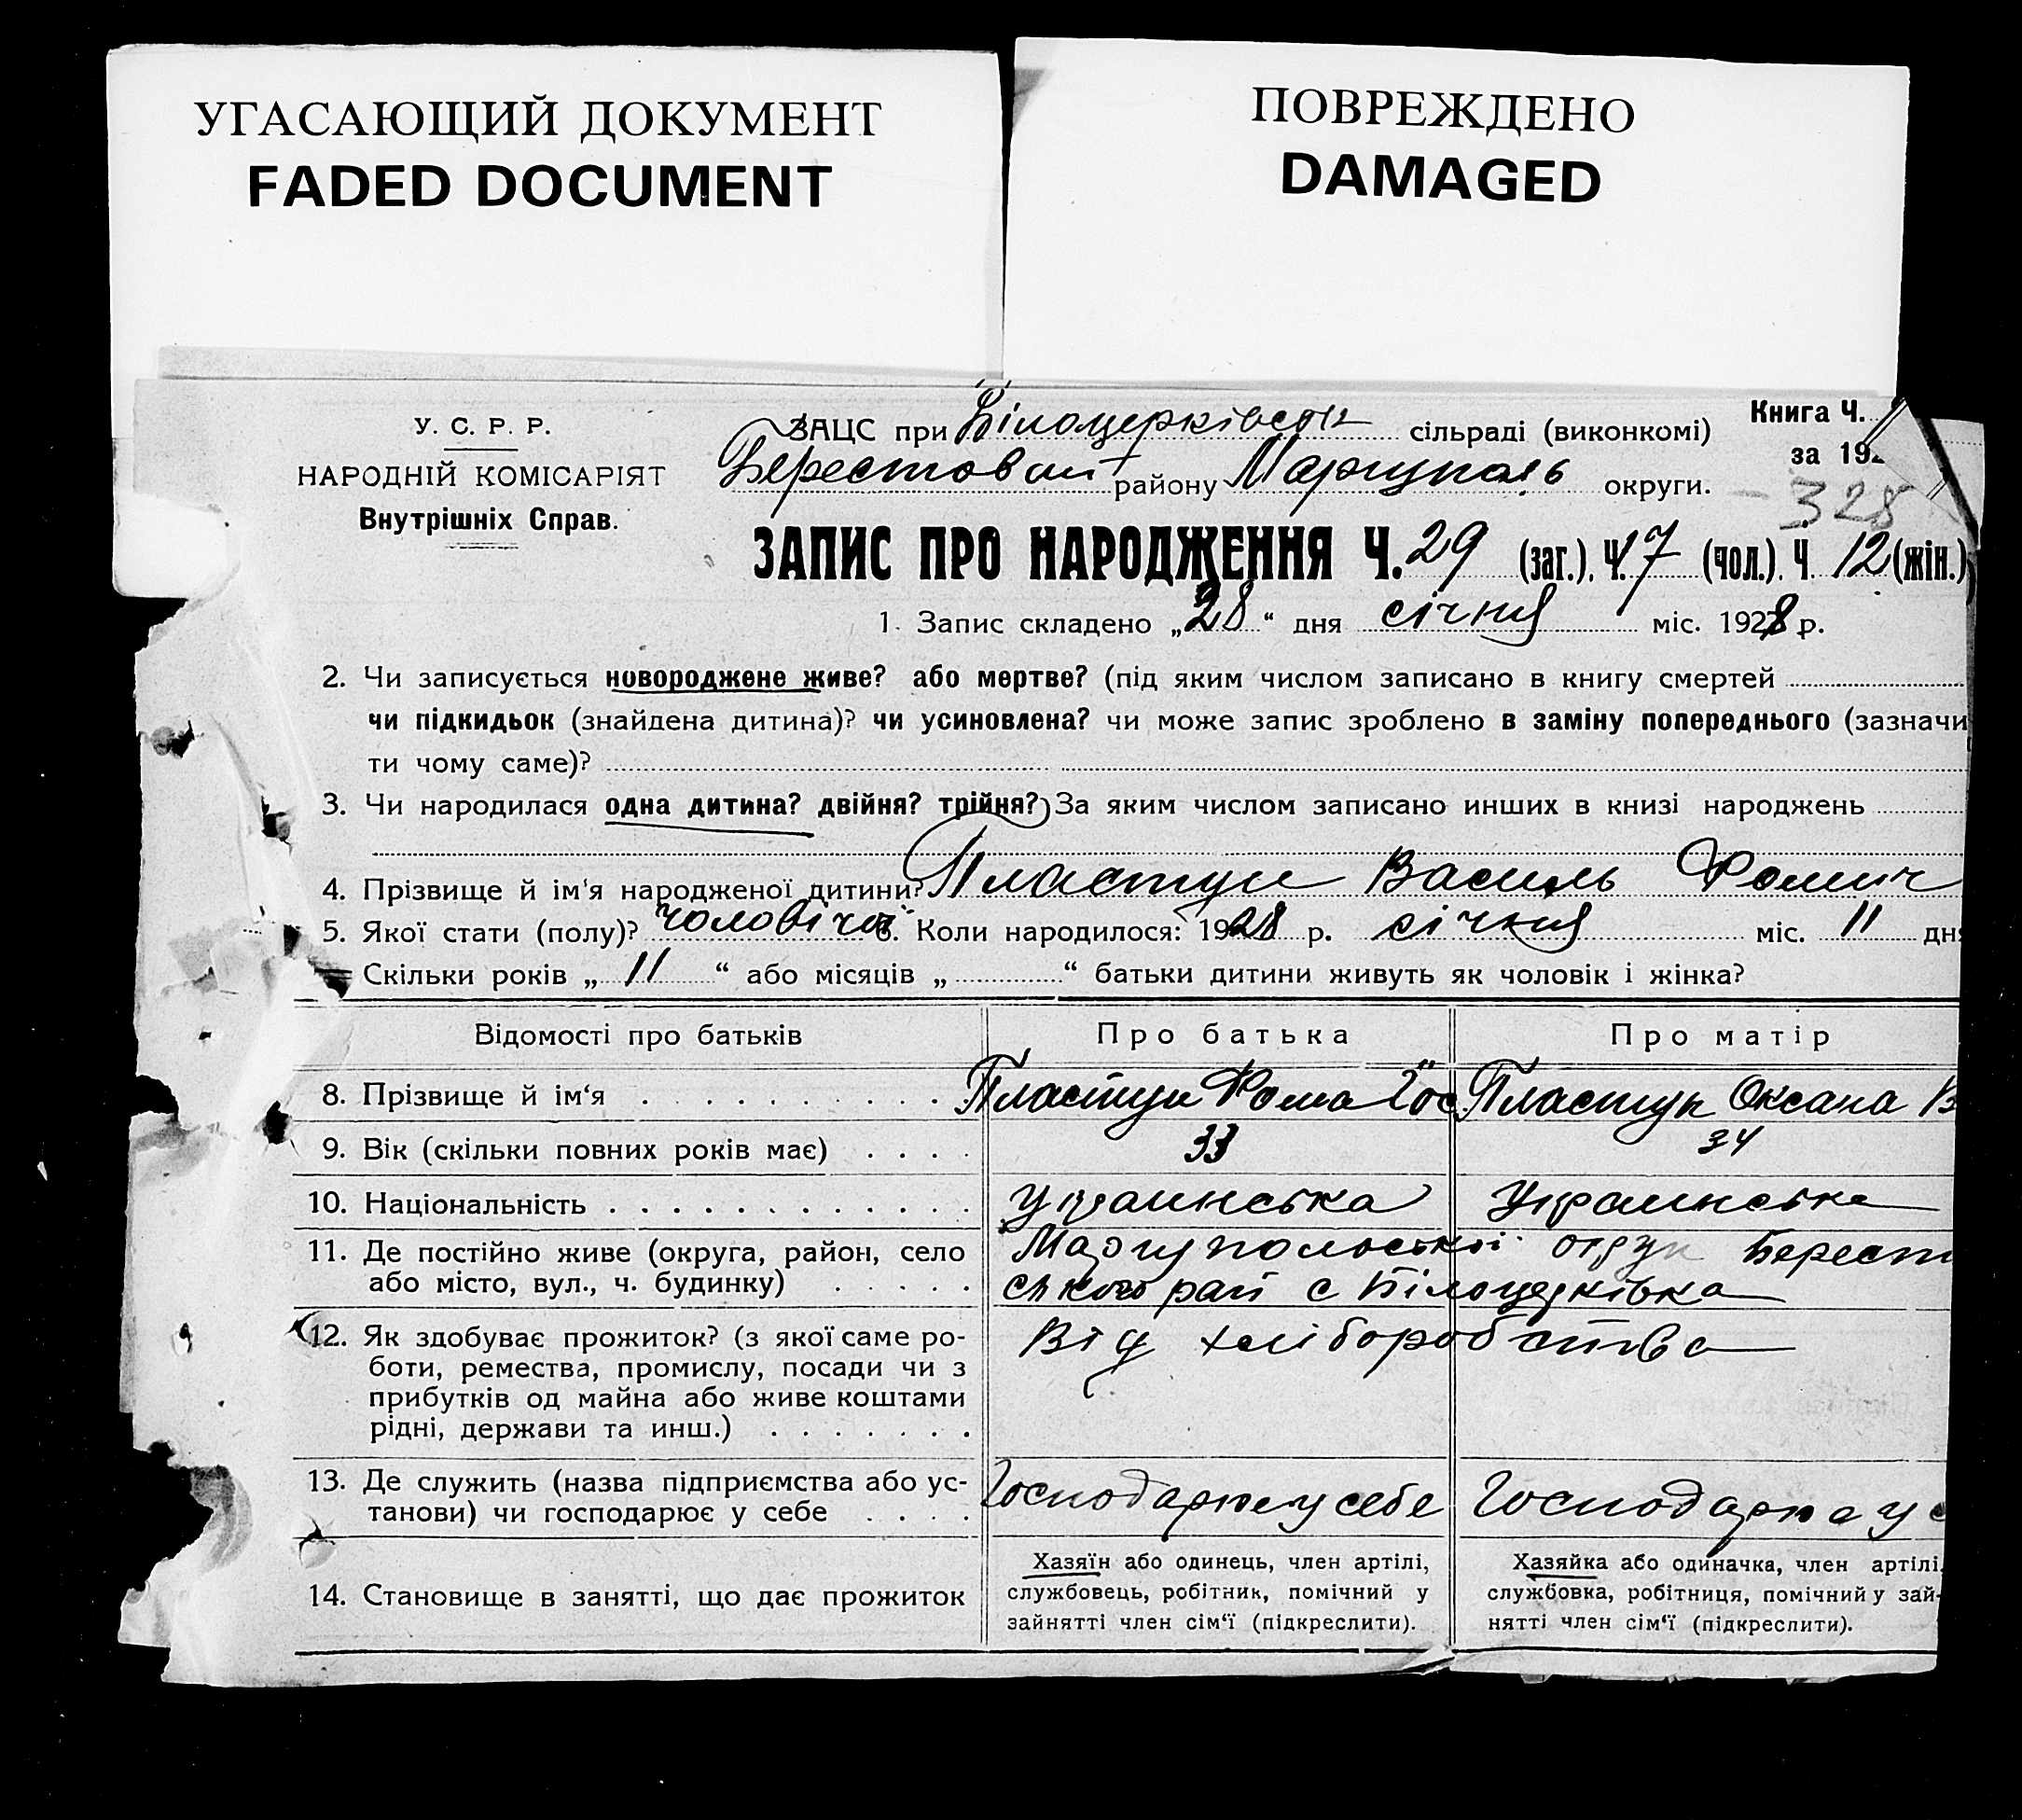 УГАСАЮЩИЙ ДОКУМЕНТ
FADED DOCUMENT
ПОВРЕЖДЕНО
DAMAGED
У. С. Р. Р.
НАРОДНІЙ КОМІСАРІЯТ
Внутрішніх Справ.
ЗАЦС при Білоцерківськ сільраді (виконкомі)
Берестовой району Мариуполь округи.
Книга Ч.
за 192
328
ЗАПИС ПРО НАРОДЖЕННЯ Ч. 29 (заг.). Ч. 17 (чол.). Ч. 12 (жін.)
1. Запис складено „28“ дня січня міс. 1928 р.
2. Чи записується новороджене живе? або мертве? (під яким числом записано в книгу смертей
чи підкидьок (знайдена дитина)? чи усиновлена? чи може запис зроблено в заміну попереднього (зазначи
ти чому саме)?
3. Чи народилася одна дитина? двійня? трійня? За яким числом записано инших в книзі народжень
4. Прізвище й ім‘я народженої дитини? Пластун Василь Фомич
5. Якої стати (полу)? чоловічої 6. Коли народилося: 1928 р. січня міс. 11 дня
Скільки років „11“ або місяців „ “ батьки дитини живуть як чоловік і жінка?
Відомості про батьків Про батька Про матір
8. Прізвище й ім‘я Пластун Фома Йос Пластун Оксана В
9. Вік (скільки повних років має) 33 34
10. Національність Украинська Украинська
11. Де постійно живе (округа, район, село Мариупольської округ Берест
або місто, вул., ч. будинку) ського рай с Білоцерківка
12. Як здобуває прожиток? (з якої саме ро- Від хліборобства
боти, ремества, промислу, посади чи з
прибутків од майна або живе коштами
рідні, держави та инш.)
13. Де служить (назва підприємства або ус-
танови) чи господарює у себе Господарює у себе Господарює у с
14. Становище в занятті, що дає прожиток
Хазяїн або одинець, член артілі,
службовець, робітник, помічний у
зайнятті член сім‘ї (підкреслити).
Хазяйка або одиначка, член артілі,
службовка, робітниця, помічний у зай-
нятті член сім‘ї (підкреслити).